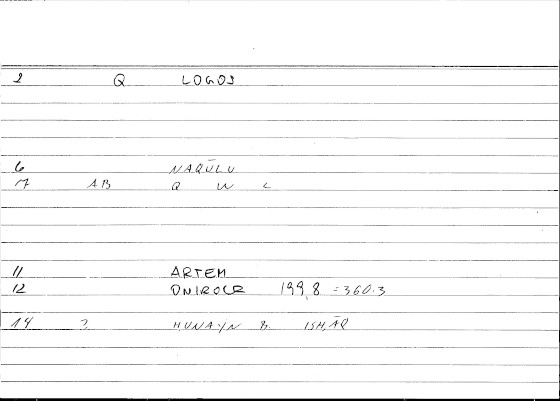 2 Q LOGOS
6 NAQŪLU
7 AB Q W L
11 ARTEM
12 ONIROCR 199,8 = 360.3
14 2 ḤUNAYN B. ISḤĀQ